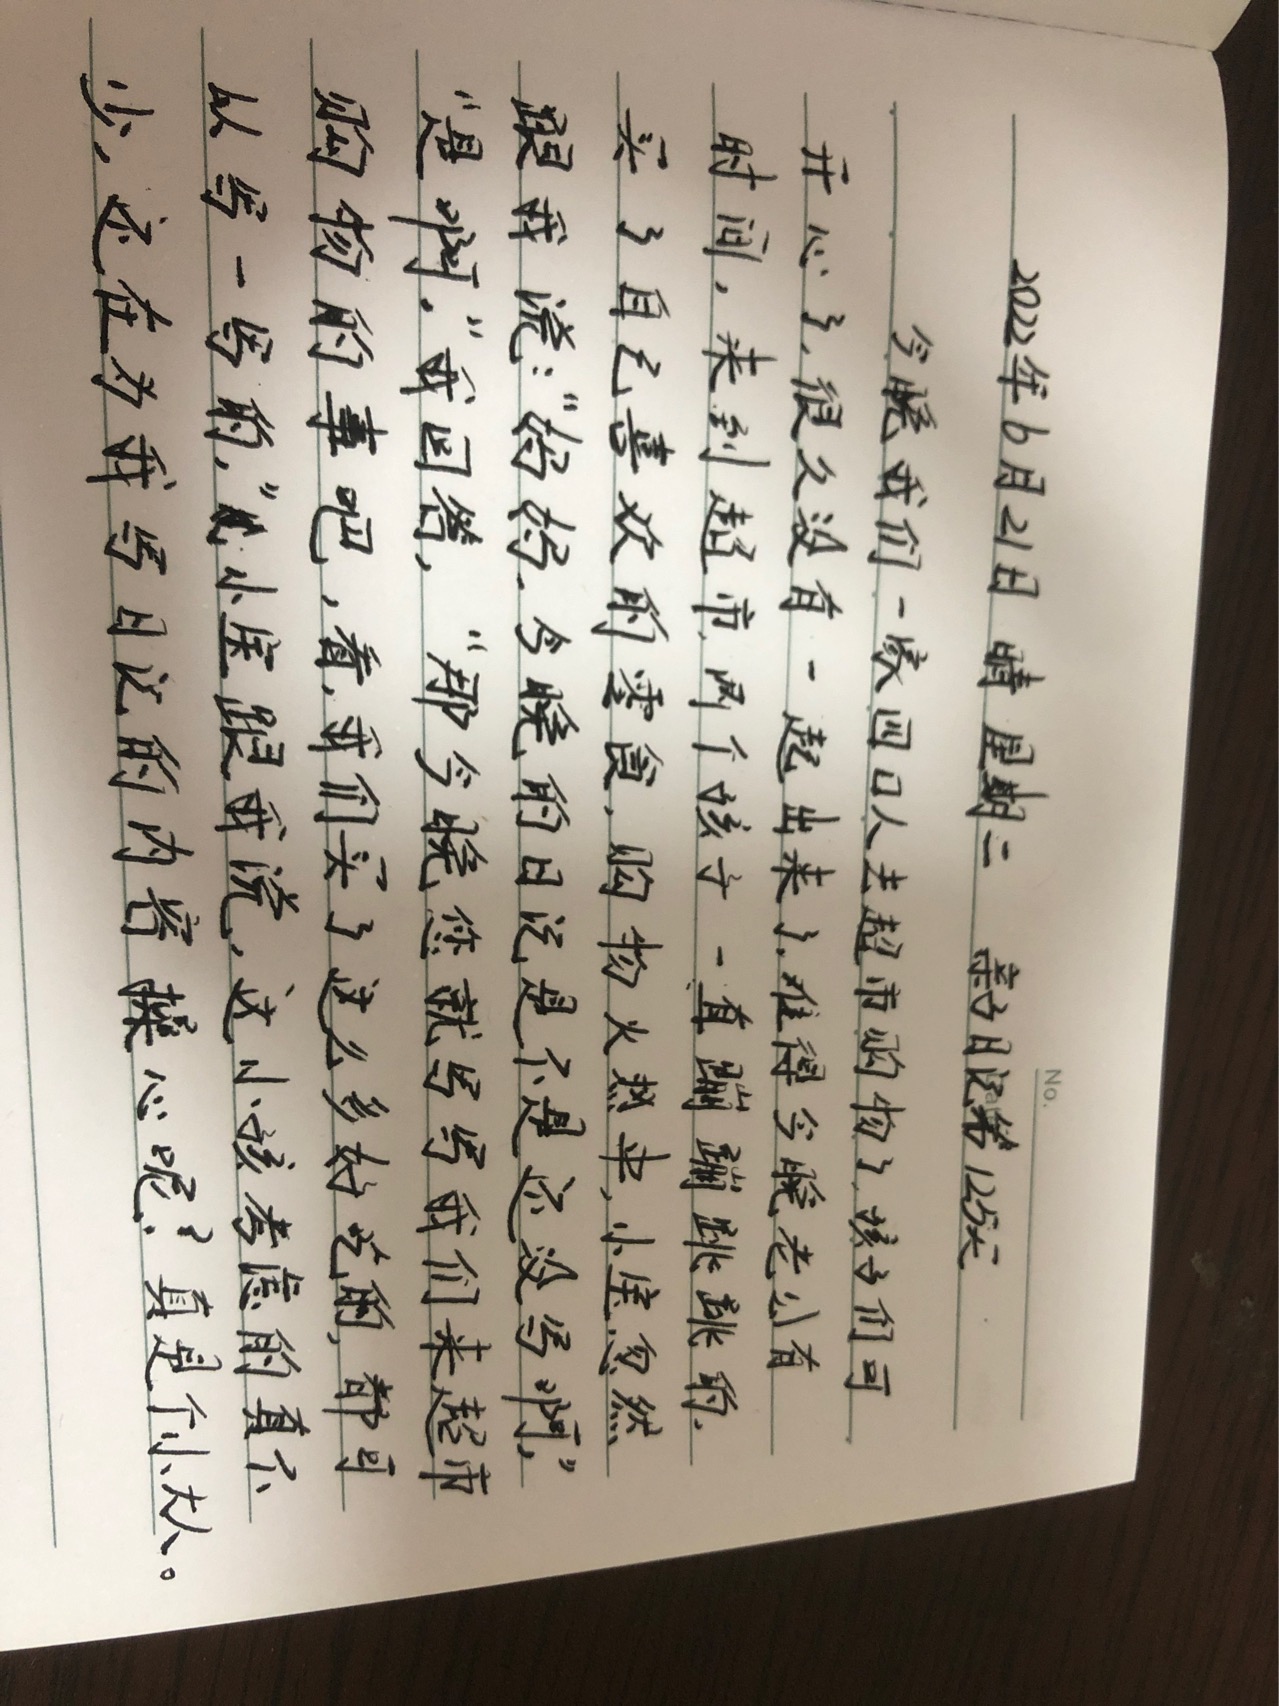 No.
2022年6月21日 晴 星期二 亲子日记第125天
今晚我们一家四口人去超市购物了,孩子们可
开心了,很久没有一起出来了,难得今晚老公有
时间,来到超市,两个孩子一直蹦蹦跳跳的,
买了自己喜欢的零食,购物火热中,小宝忽然
跟我说:“妈妈,今晚的日记是不是还没写啊,”
“是啊,”我回答,“那今晚您就写写我们来超市
购物的事吧,看,我们买了这么多好吃的,都可
以写一写的,”小宝跟我说,这小孩考虑的真不
少,还在为我写日记的内容操心呢?真是个小大人。